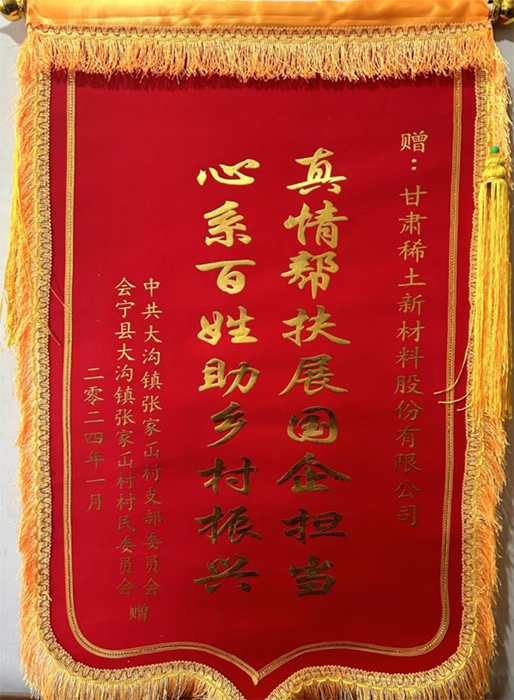 赠：甘肃稀土新材料股份有限公司
真情帮扶展国企担当
心系百姓助乡村振兴
中共大沟镇张家山村支部委员会
会宁县大沟镇张家山村村民委员会 赠
二零二四年一月